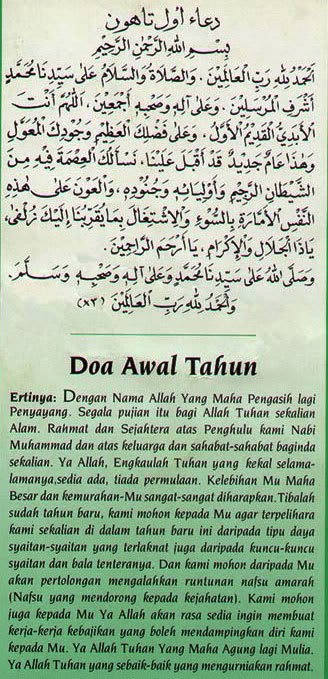 دعاء اول تاهون
بِسْمِ اللهِ الرَّحْمٰنِ الرَّحِيْمِ
اَلْحَمْدُ لِلّٰهِ رَبِّ الْعَالَمِيْنَ . وَالصَّلَاةُ وَالسَّلَامُ عَلٰى سَيِّدِنَا مُحَمَّدٍ
أَشْرَفِ الْمُرْسَلِيْنَ . وَعَلٰى آلِهِ وَصَحْبِهِ أَجْمَعِيْنَ . اَللّٰهُمَّ أَنْتَ
الْأَبَدِيُّ الْقَدِيْمُ الْأَوَّلُ . وَعَلٰى فَضْلِكَ الْعَظِيْمِ وَجُوْدِكَ الْمُعَوَّلِ
وَهٰذَا عَامٌ جَدِيْدٌ قَدْ أَقْبَلَ عَلَيْنَا . نَسْأَلُكَ الْعِصْمَةَ فِيْهِ مِنَ
الشَّيْطَانِ الرَّجِيْمِ وَأَوْلِيَائِهِ وَجُنُوْدِهِ . وَالْعَوْنَ عَلٰى هٰذِهِ
النَّفْسِ الْأَمَّارَةِ بِالسُّوْءِ وَالْاِشْتِغَالَ بِمَا يُقَرِّبُنَا إِلَيْكَ زُلْفٰى .
يَا ذَا الْجَلَالِ وَالْإِكْرَامِ . يَا أَرْحَمَ الرَّاحِمِيْنَ .
وَصَلَّى اللهُ عَلٰى سَيِّدِنَا مُحَمَّدٍ وَعَلٰى آلِهِ وَصَحْبِهِ وَسَلَّمَ .
وَالْحَمْدُ لِلّٰهِ رَبِّ الْعَالَمِيْنَ (٣×)
Doa Awal Tahun
Ertinya: Dengan Nama Allah Yang Maha Pengasih lagi
Penyayang. Segala pujian itu bagi Allah Tuhan sekalian
Alam. Rahmat dan Sejahtera atas Penghulu kami Nabi
Muhammad dan atas keluarga dan sahabat-sahabat baginda
sekalian. Ya Allah, Engkaulah Tuhan yang kekal selama-
lamanya,sedia ada, tiada permulaan. Kelebihan Mu Maha
Besar dan kemurahan-Mu sangat-sangat diharapkan.Tibalah
sudah tahun baru, kami mohon kepada Mu agar terpelihara
kami sekalian di dalam tahun baru ini daripada tipu daya
syaitan-syaitan yang terlaknat juga daripada kuncu-kuncu
syaitan dan bala tenteranya. Dan kami mohon daripada Mu
akan pertolongan mengalahkan runtunan nafsu amarah
(Nafsu yang mendorong kepada kejahatan). Kami mohon
juga kepada Mu Ya Allah akan rasa sedia ingin membuat
kerja-kerja kebajikan yang boleh mendampingkan diri kami
kepada Mu. Ya Allah Tuhan Yang Maha Agung lagi Mulia.
Ya Allah Tuhan yang sebaik-baik yang mengurniakan rahmat.